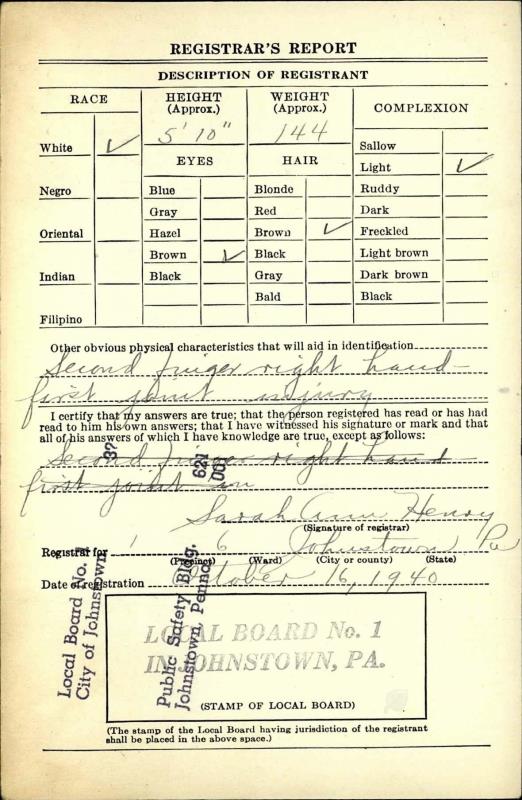 REGISTRAR'S REPORT
DESCRIPTION OF REGISTRANT
RACE
HEIGHT (Approx.)
WEIGHT (Approx.)
COMPLEXION
5' 10"
144
White ✓
EYES
HAIR
Sallow
Light ✓
Negro
Blue
Blonde
Ruddy
Gray
Red
Dark
Oriental
Hazel
Brown ✓
Freckled
Brown ✓
Black
Light brown
Indian
Black
Gray
Dark brown
Bald
Black
Filipino
Other obvious physical characteristics that will aid in identification
Second finger right hand-
first joint injury
I certify that my answers are true; that the person registered has read or has had
read to him his own answers; that I have witnessed his signature or mark and that
all of his answers of which I have knowledge are true, except as follows:
Second finger right hand
first joint in
Sarah Ann Henry
(Signature of registrar)
Registrar for 1 6 Johnstown Pa
(Precinct) (Ward) (City or county) (State)
Date of registration October 16, 1940
Local Board No. 1
City of Johnstown
37
621
007
Public Safety Bldg.
Johnstown, Penna.
LOCAL BOARD No. 1
IN JOHNSTOWN, PA.
(STAMP OF LOCAL BOARD)
(The stamp of the Local Board having jurisdiction of the registrant
shall be placed in the above space.)